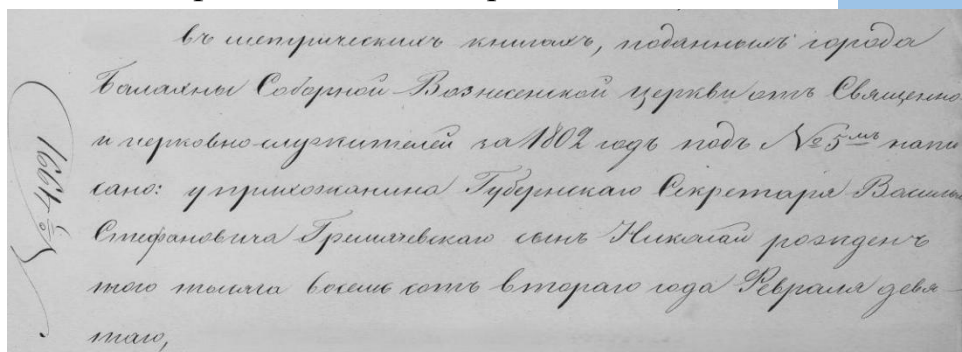 въ метрическихъ книгахъ, поданныхъ города
Балахны Соборной Вознесенской церкви отъ Священно
и церковно-служителей за 1802 годъ подъ № 5мъ напи
сано: у прихожанина Губернскаго Секретаря Василья
Стефановича Гремячевскаго сынъ Николай рожденъ
того тысяча восемь сотъ втораго года Февраля девя-
таго,